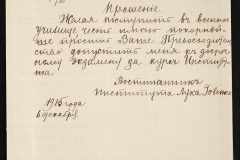 Прошение
Желая поступить в военное
училище, честь имею покорней-
ше просить Ваше Превосходитель-
ство допустить меня к доср
ному экзамену за курс Институ-
та.
Воспитанник
Института Лука
1915 года
6 декабря